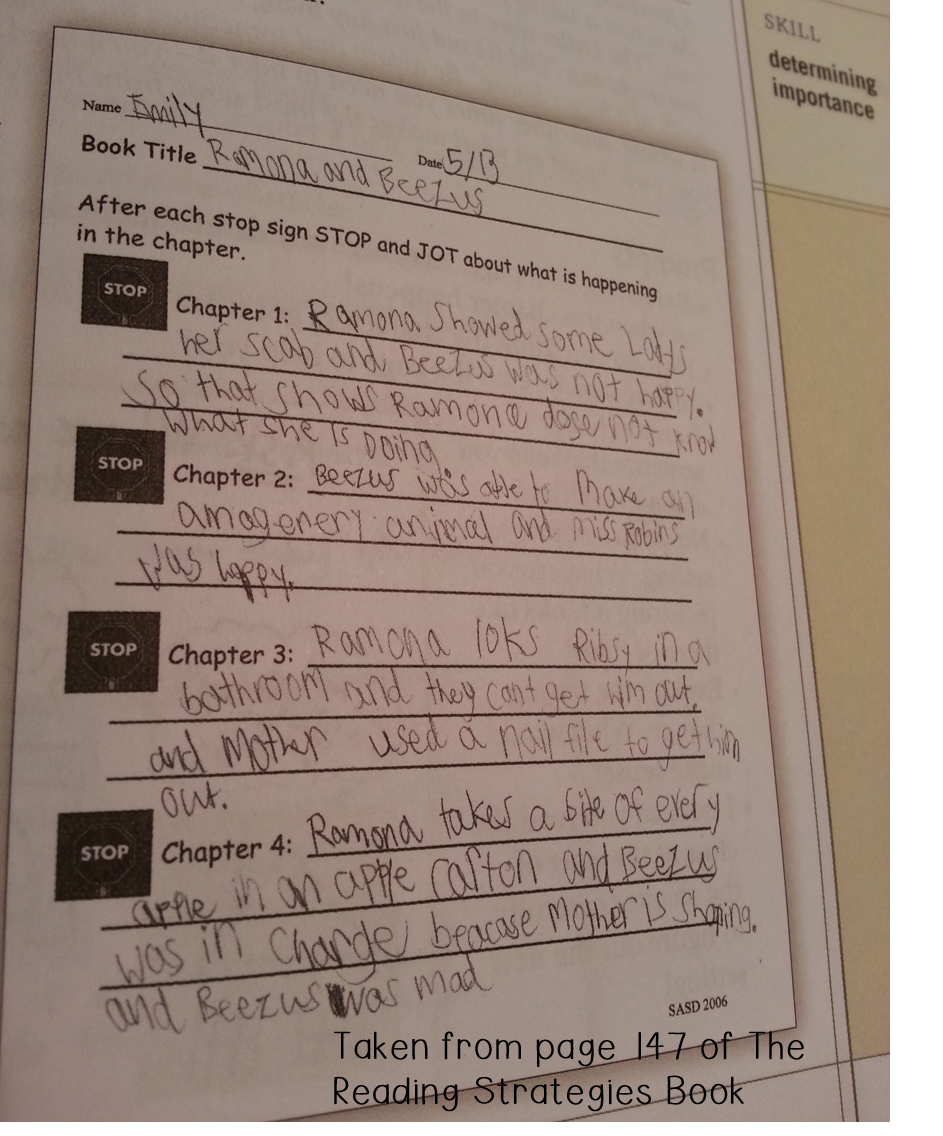 SKILL
determining
importance
Name Emily
Date 5/13
Book Title Ramona and Beezus
After each stop sign STOP and JOT about what is happening
in the chapter.
STOP
Chapter 1: Ramona showed some Ladys
her scab and Beezus was not happy.
So that shows Ramona dose not know
what she is Doing
STOP
Chapter 2: Beezus was able to make an
amagenery animal and miss Robins
was happy.
STOP
Chapter 3: Ramona loks Ribsy in a
bathroom and they cant get him out.
and Mother used a nail file to get him
out.
STOP
Chapter 4: Ramona takes a bite of every
apple in an apple carton and Beezus
was in charge beacase Mother is shoping.
and Beezus was mad
SASD 2006
Taken from page 147 of The
Reading Strategies Book